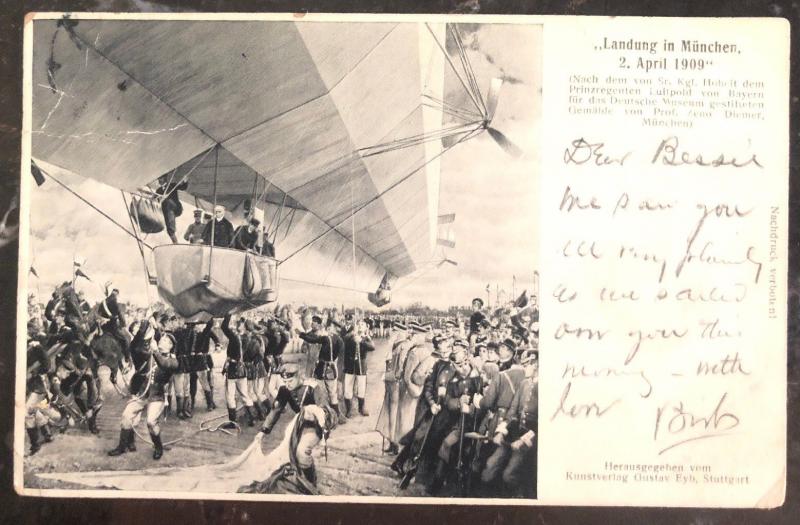 „Landung in München,
2. April 1909“
(Nach dem von Sr. Kgl. Hoheit dem
Prinzregenten Luitpold von Bayern
für das Deutsche Museum gestifteten
Gemälde von Prof. Zeno Diemer,
München)
Dear Bessie
We saw you
all very plainly
as we sailed
over you this
morning — with
love
Nachdruck verboten!
Herausgegeben vom
Kunstverlag Gustav Eyb, Stuttgart